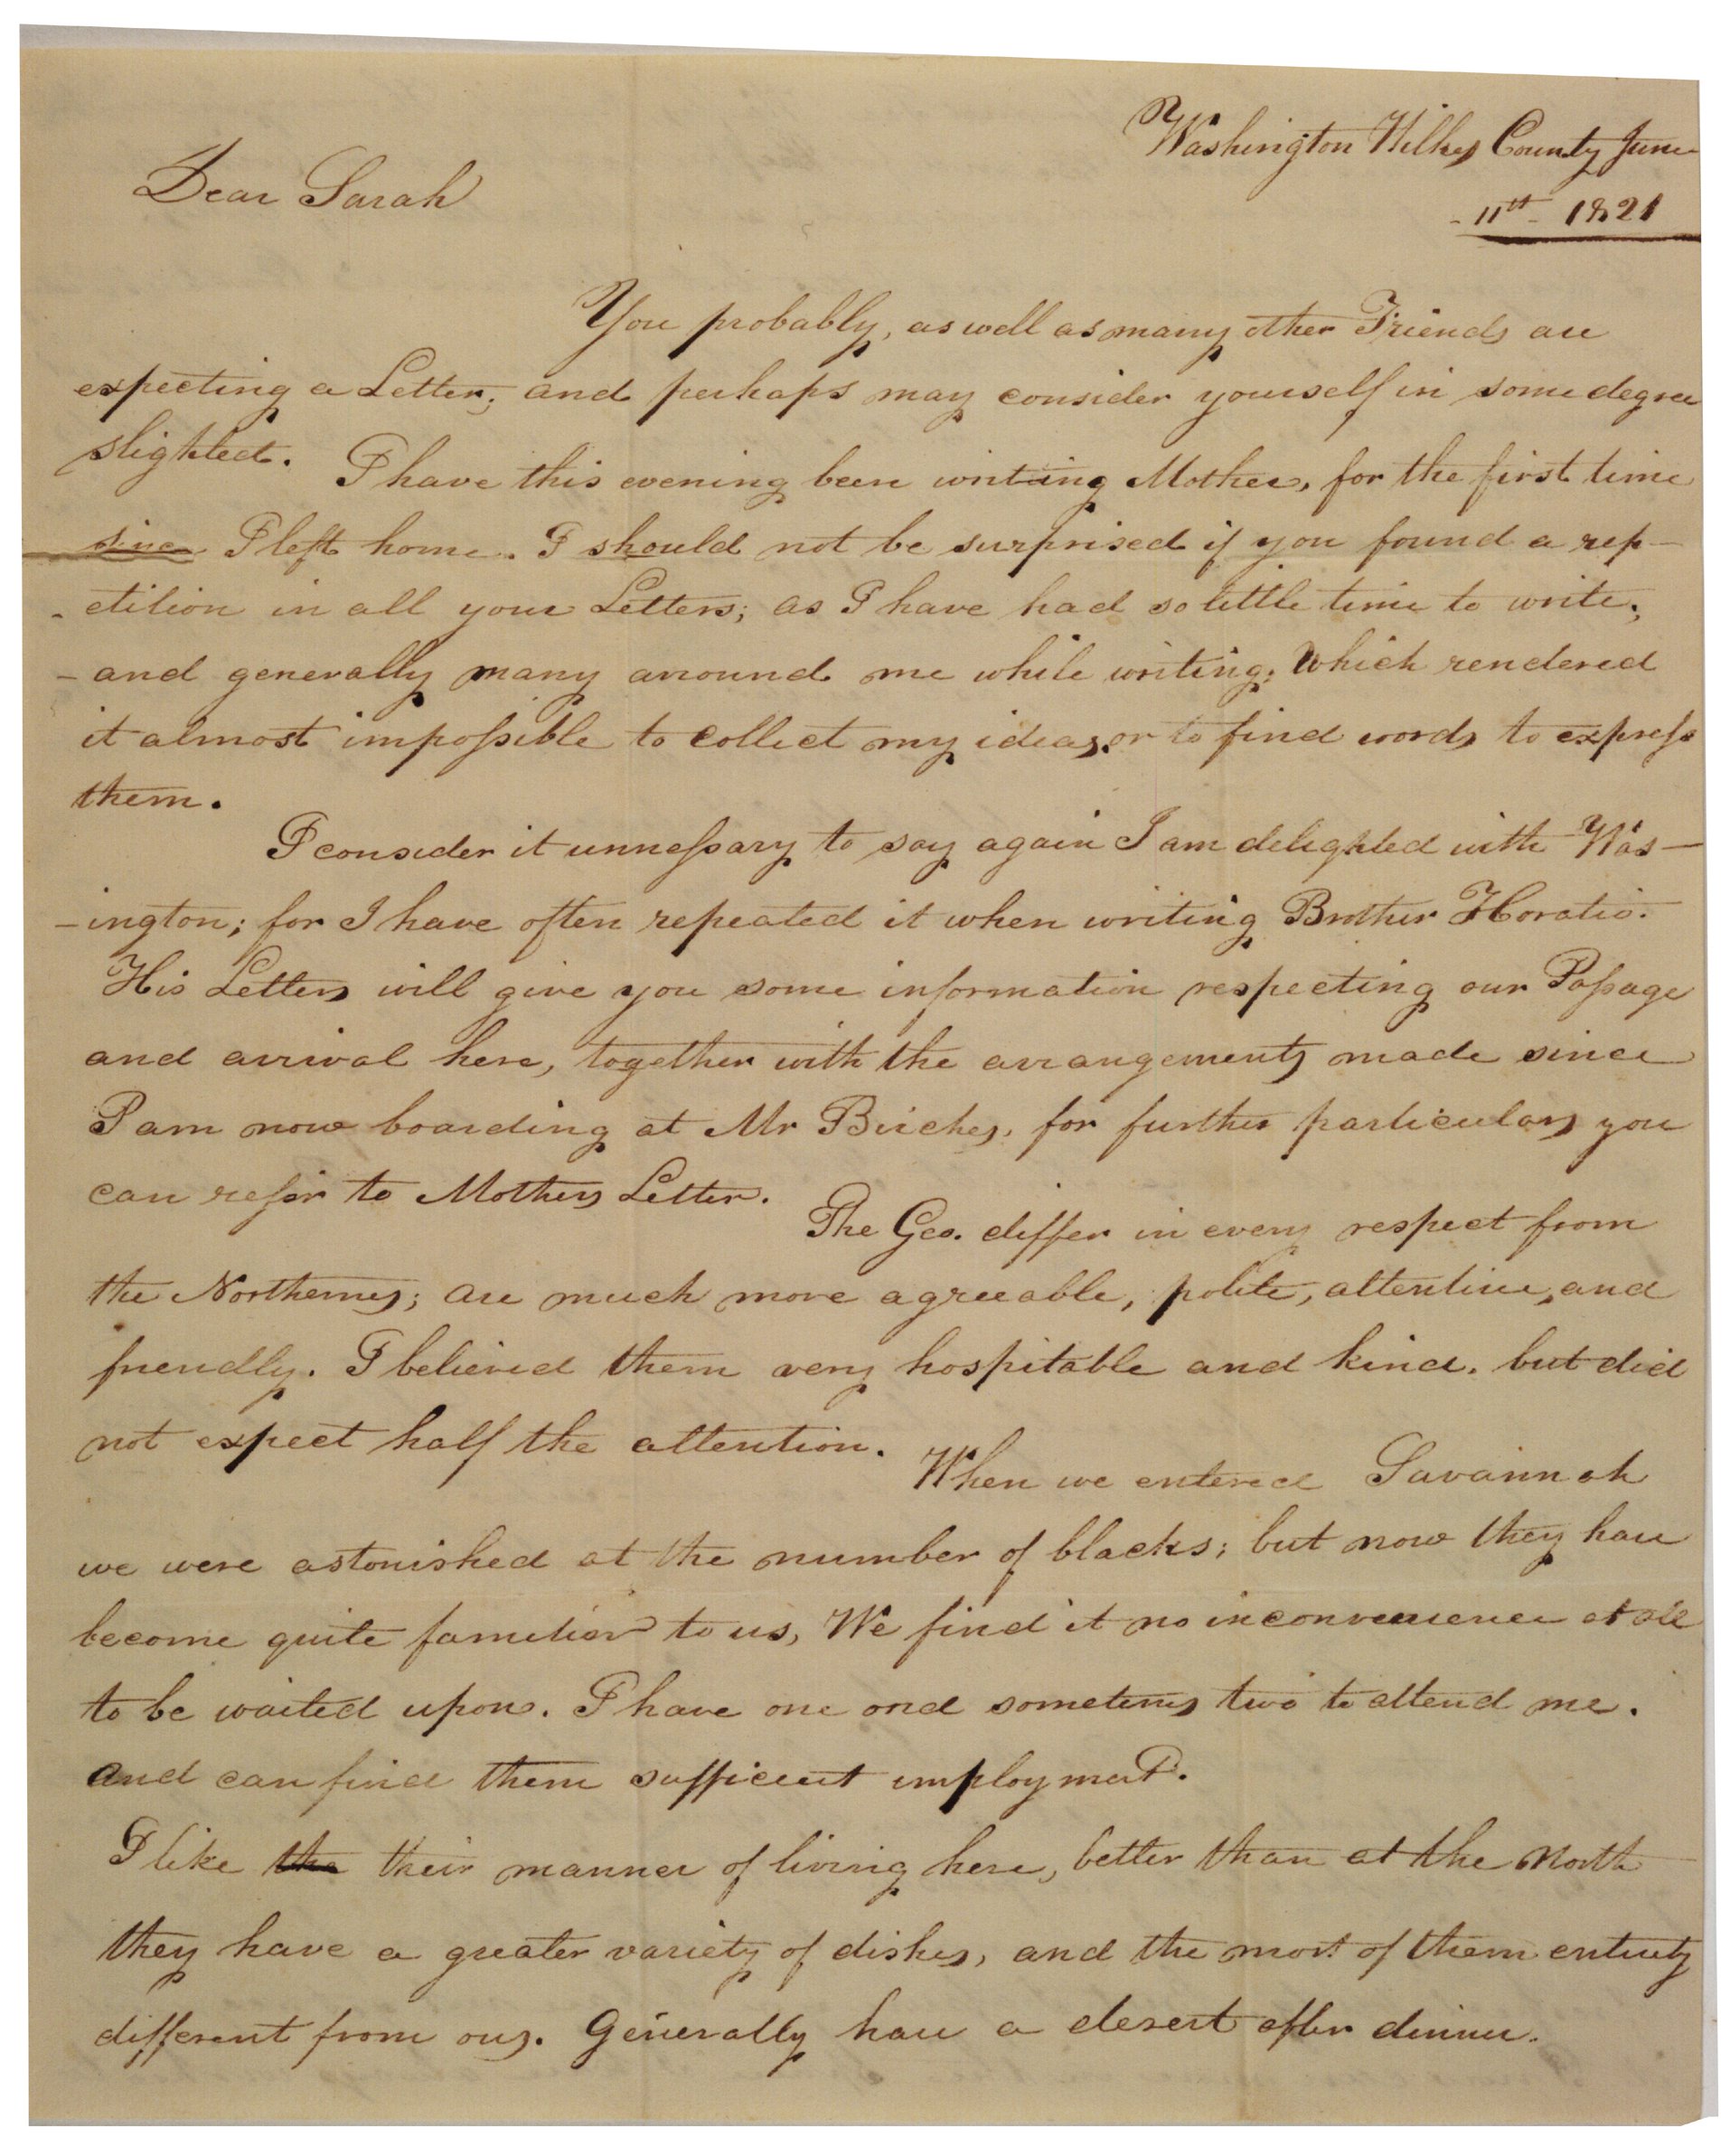 Washington Wilkes County June
- 11th - 1821
Dear Sarah
You probably, as well as many other Friends are
expecting a Letter; and perhaps may consider yourself in some degree
slighted. I have this evening been writing Mother, for the first time
since I left home. I should not be surprised if you found a rep-
-etition in all your Letters; as I have had so little time to write;
- and generally many arround me while writing; Which rendered
it almost impossible to collect my ideas, or to find words to express
them.
I consider it unnessary to say again I am delighted with Was-
-ington; for I have often repeated it when writing Brother Horatio.
His Letters will give you some information respecting our Passage
and arrival here, together with the arrangements made since
I am now boarding at Mr Birches, for further particulars you
can refer to Mothers Letter. The Geo. differ in every respect from
the Northerners; are much more agreeable, polite, attentive, and
friendly. I believed them very hospitable and kind, but did
not expect half the attention. When we entered Savannah
we were astonished at the number of blacks; but now they have
become quite familiar to us, We find it no inconvenience at all
to be waited upon. I have one and sometimes two to attend me.
And can find them sufficient employment.
I like the their manner of living here, better than at the North
they have a greater variety of dishes, and the most of them entirely
different from ours. Generally have a desert after dinner.